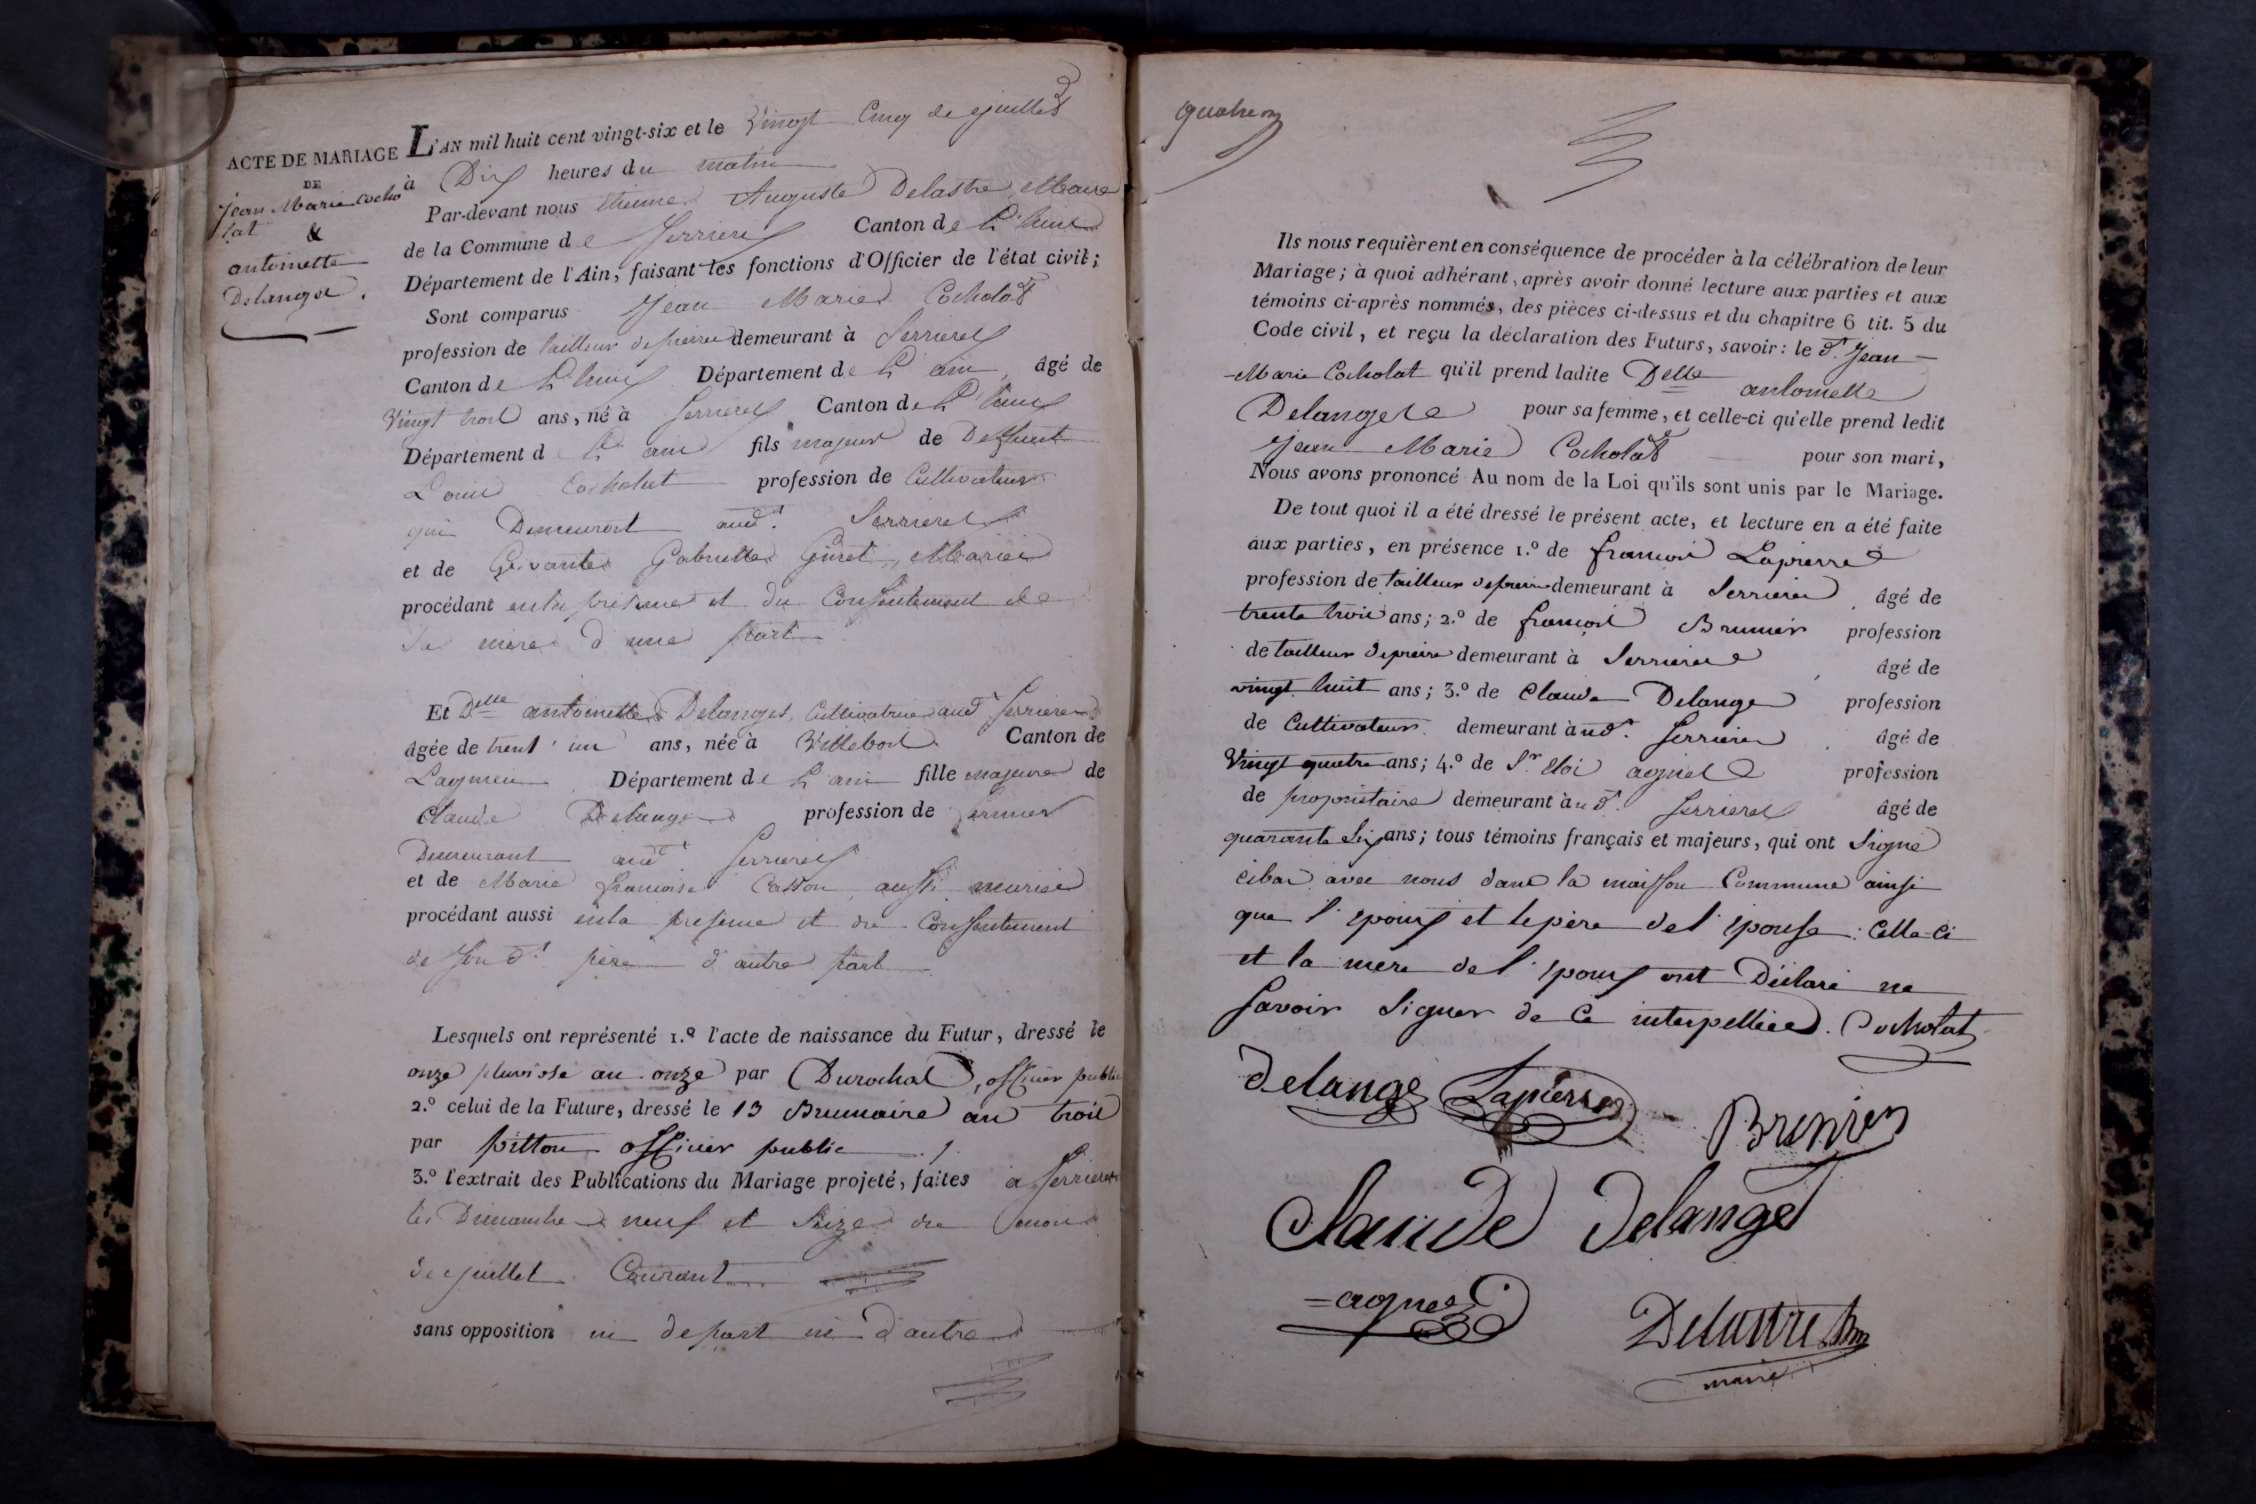 3
ACTE DE MARIAGE
DE
Jean Marie Cocho
lat
&
antoinette
Delange .
L'AN mil huit cent vingt-six et le Vingt Cinq de juillet
à Dix heures du matin
Par-devant nous Etienne Auguste Delastre Maire
de la Commune de Serrieres Canton de L'huis
Département de l'Ain, faisant les fonctions d'Officier de l'état civil;
Sont comparus Jean Marie Cocholat
profession de tailleur de pierre demeurant à Serrieres
Canton de L'huis Département de L'ain, âgé de
Vingt trois ans, né à Serrieres Canton de L'huis
Département d L'ain fils majeur de Deffunt
Louis Cocholat profession de Cultivateur
qui Demeurait aud.t Serrieres
et de Vivante Gabrielle Mariée
procédant en la présence et du Consentement de
Sa mère d'une part
Et Delle antoinette Delange, Cultivatrice aud.t Serrieres
âgée de trent'un ans, née à Villebois Canton de
Lagnieu Département de L'ain fille majeure de
Claude Delange profession de fermier
Demeurant aud.t Serrieres
et de Marie françoise aussi mariée
procédant aussi en la présence et du Consentement
de Son d.t père d'autre part
Lesquels ont représenté 1.º l'acte de naissance du Futur, dressé le
onze pluviose an onze par Durochat, officier public
2.º celui de la Future, dressé le 13 Brumaire an trois
par pitton officier public
3.º l'extrait des Publications du Mariage projeté, faites à Serrieres
les Dimanches neuf et Seize du mois
de juillet Courant
sans opposition ni de part ni d'autre
quatre
Ils nous requièrent en conséquence de procéder à la célébration de leur
Mariage; à quoi adhérant, après avoir donné lecture aux parties et aux
témoins ci-après nommés, des pièces ci-dessus et du chapitre 6 tit. 5 du
Code civil, et reçu la déclaration des Futurs, savoir: le d.t Jean
Marie Cocholat qu'il prend ladite Delle antoinette
Delange pour sa femme, et celle-ci qu'elle prend ledit
Jean Marie Cocholat pour son mari,
Nous avons prononcé Au nom de la Loi qu'ils sont unis par le Mariage.
De tout quoi il a été dressé le présent acte, et lecture en a été faite
aux parties, en présence 1.º de françois Lapierre
profession de tailleur de pierre demeurant à Serrieres âgé de
trente trois ans; 2.º de françois Brunier profession
de tailleur de pierre demeurant à Serrieres, âgé de
vingt huit ans; 3.º de Claude Delange profession
de Cultivateur demeurant à ud.t Serrieres, âgé de
Vingt quatre ans; 4.º de S.r Eloi agniel profession
de propriétaire demeurant à ud.t Serrieres âgé de
quarante Six ans; tous témoins français et majeurs, qui ont Signé
cibas avec nous dans la maison Commune ainsi
que l'epoux et le père de l'epouse : Celle-Ci
et la mère de l'epoux ont Déclaré ne
Savoir Signer de Ce interpellées. Cocholat
delange Lapierre
Brenier
Claude Delange
Delastre
maire